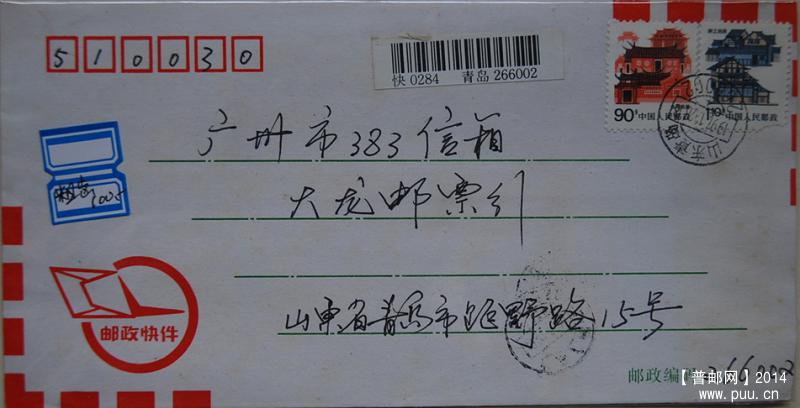 510030
快 0284 青岛 266002
90分 中国人民邮政
中国人民邮政
广州市383信箱
大龙邮票
邮政快件
山东省青岛市巨野路15号
邮政编码 266002
【普邮网】2014
www.puu.cn